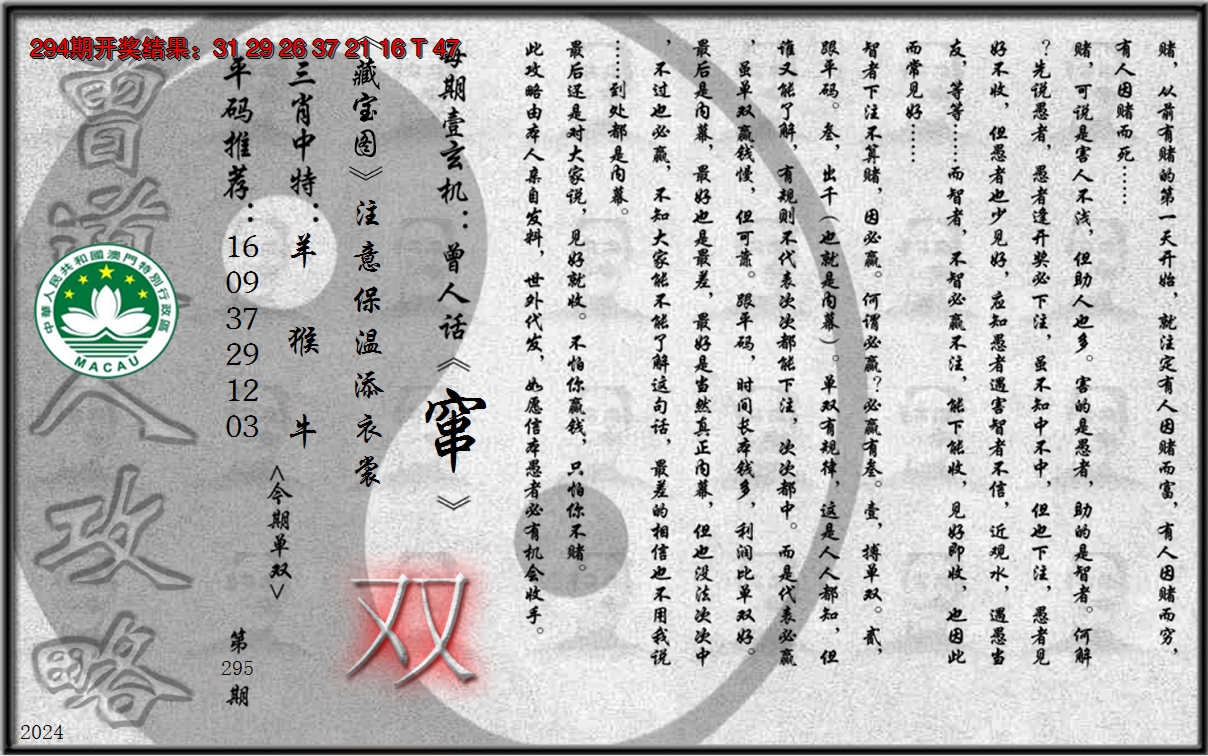 294期开奖结果：31 29 26 37 21 16 T 47
赌，从前有赌的第一天开始，就注定有人因赌而富，有人因赌而穷，
有人因赌而死……
赌，可说是害人不浅，但助人也多。害的是愚者，助的是智者。何解
？先说愚者，愚者逢开奖必下注，虽不知中不中，但也下注，愚者见
好不收，但愚者也少见好，应知愚者遇害智者不信，近观水，遇愚当
友，等等……而智者，不智必赢不注，能下能收，见好即收，也因此
而常见好……
智者下注不算赌，因必赢。何谓必赢？必赢有叁。壹，搏单双。贰，
跟平码。叁，出千（也就是内幕）。单双有规律，这是人人都知，但
谁又能了解，有规则不代表次次都能下注，次次都中。而是代表必赢
，虽单双赢钱慢，但可靠。跟平码，时间长本钱多，利润比单双好。
最后是内幕，最好也是最差，最好是当然真正内幕，但也没法次次中
，不过也必赢，不知大家能不能了解这句话，最差的相信也不用我说
……到处都是内幕。
最后还是对大家说，见好就收。不怕你赢钱，只怕你不赌。
此攻略由本人亲自发料，世外代发，如愿信本愚者必有机会收手。
每期壹玄机：曾人话《窜》
《藏宝图》注意保温添衣裳
双
三肖中特：羊 猴 牛
<今期单双>
平码推荐：
16
09
37
29
12
03
第
295
期
曾道人攻略
中華人民共和國澳門特別行政區
MACAU
2024